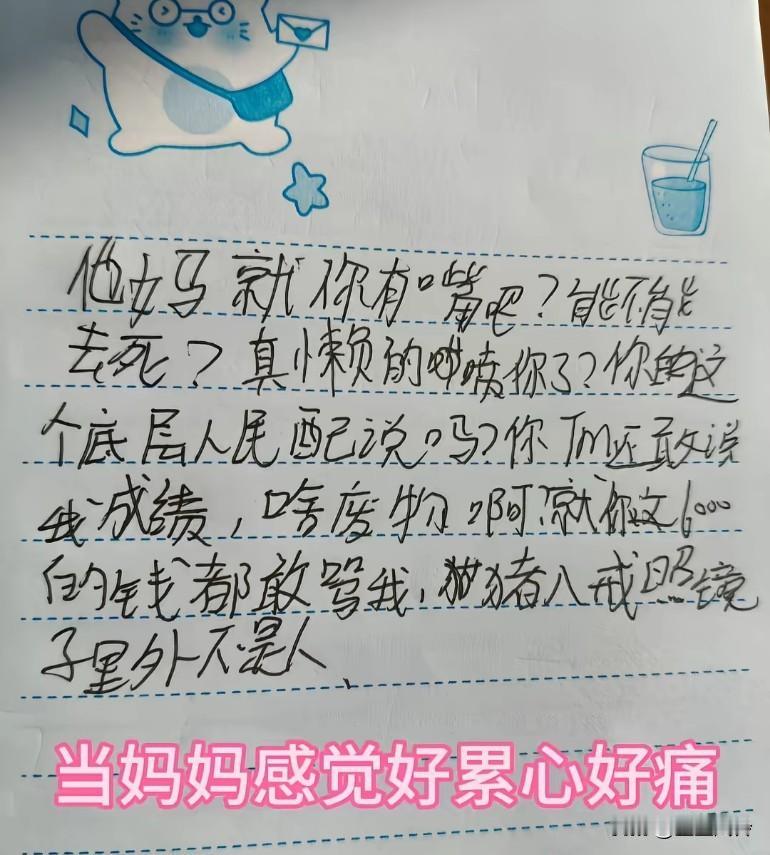 他妈就你有嘴吧？能不能
去死？真懒的喷你了？你这
个底层人民配说？吗？你Tm还敢说
我成绩，啥废物啊？就你这6000
的钱都敢骂我，猪八戒照镜
子里外不是人、
当妈妈感觉好累心好痛